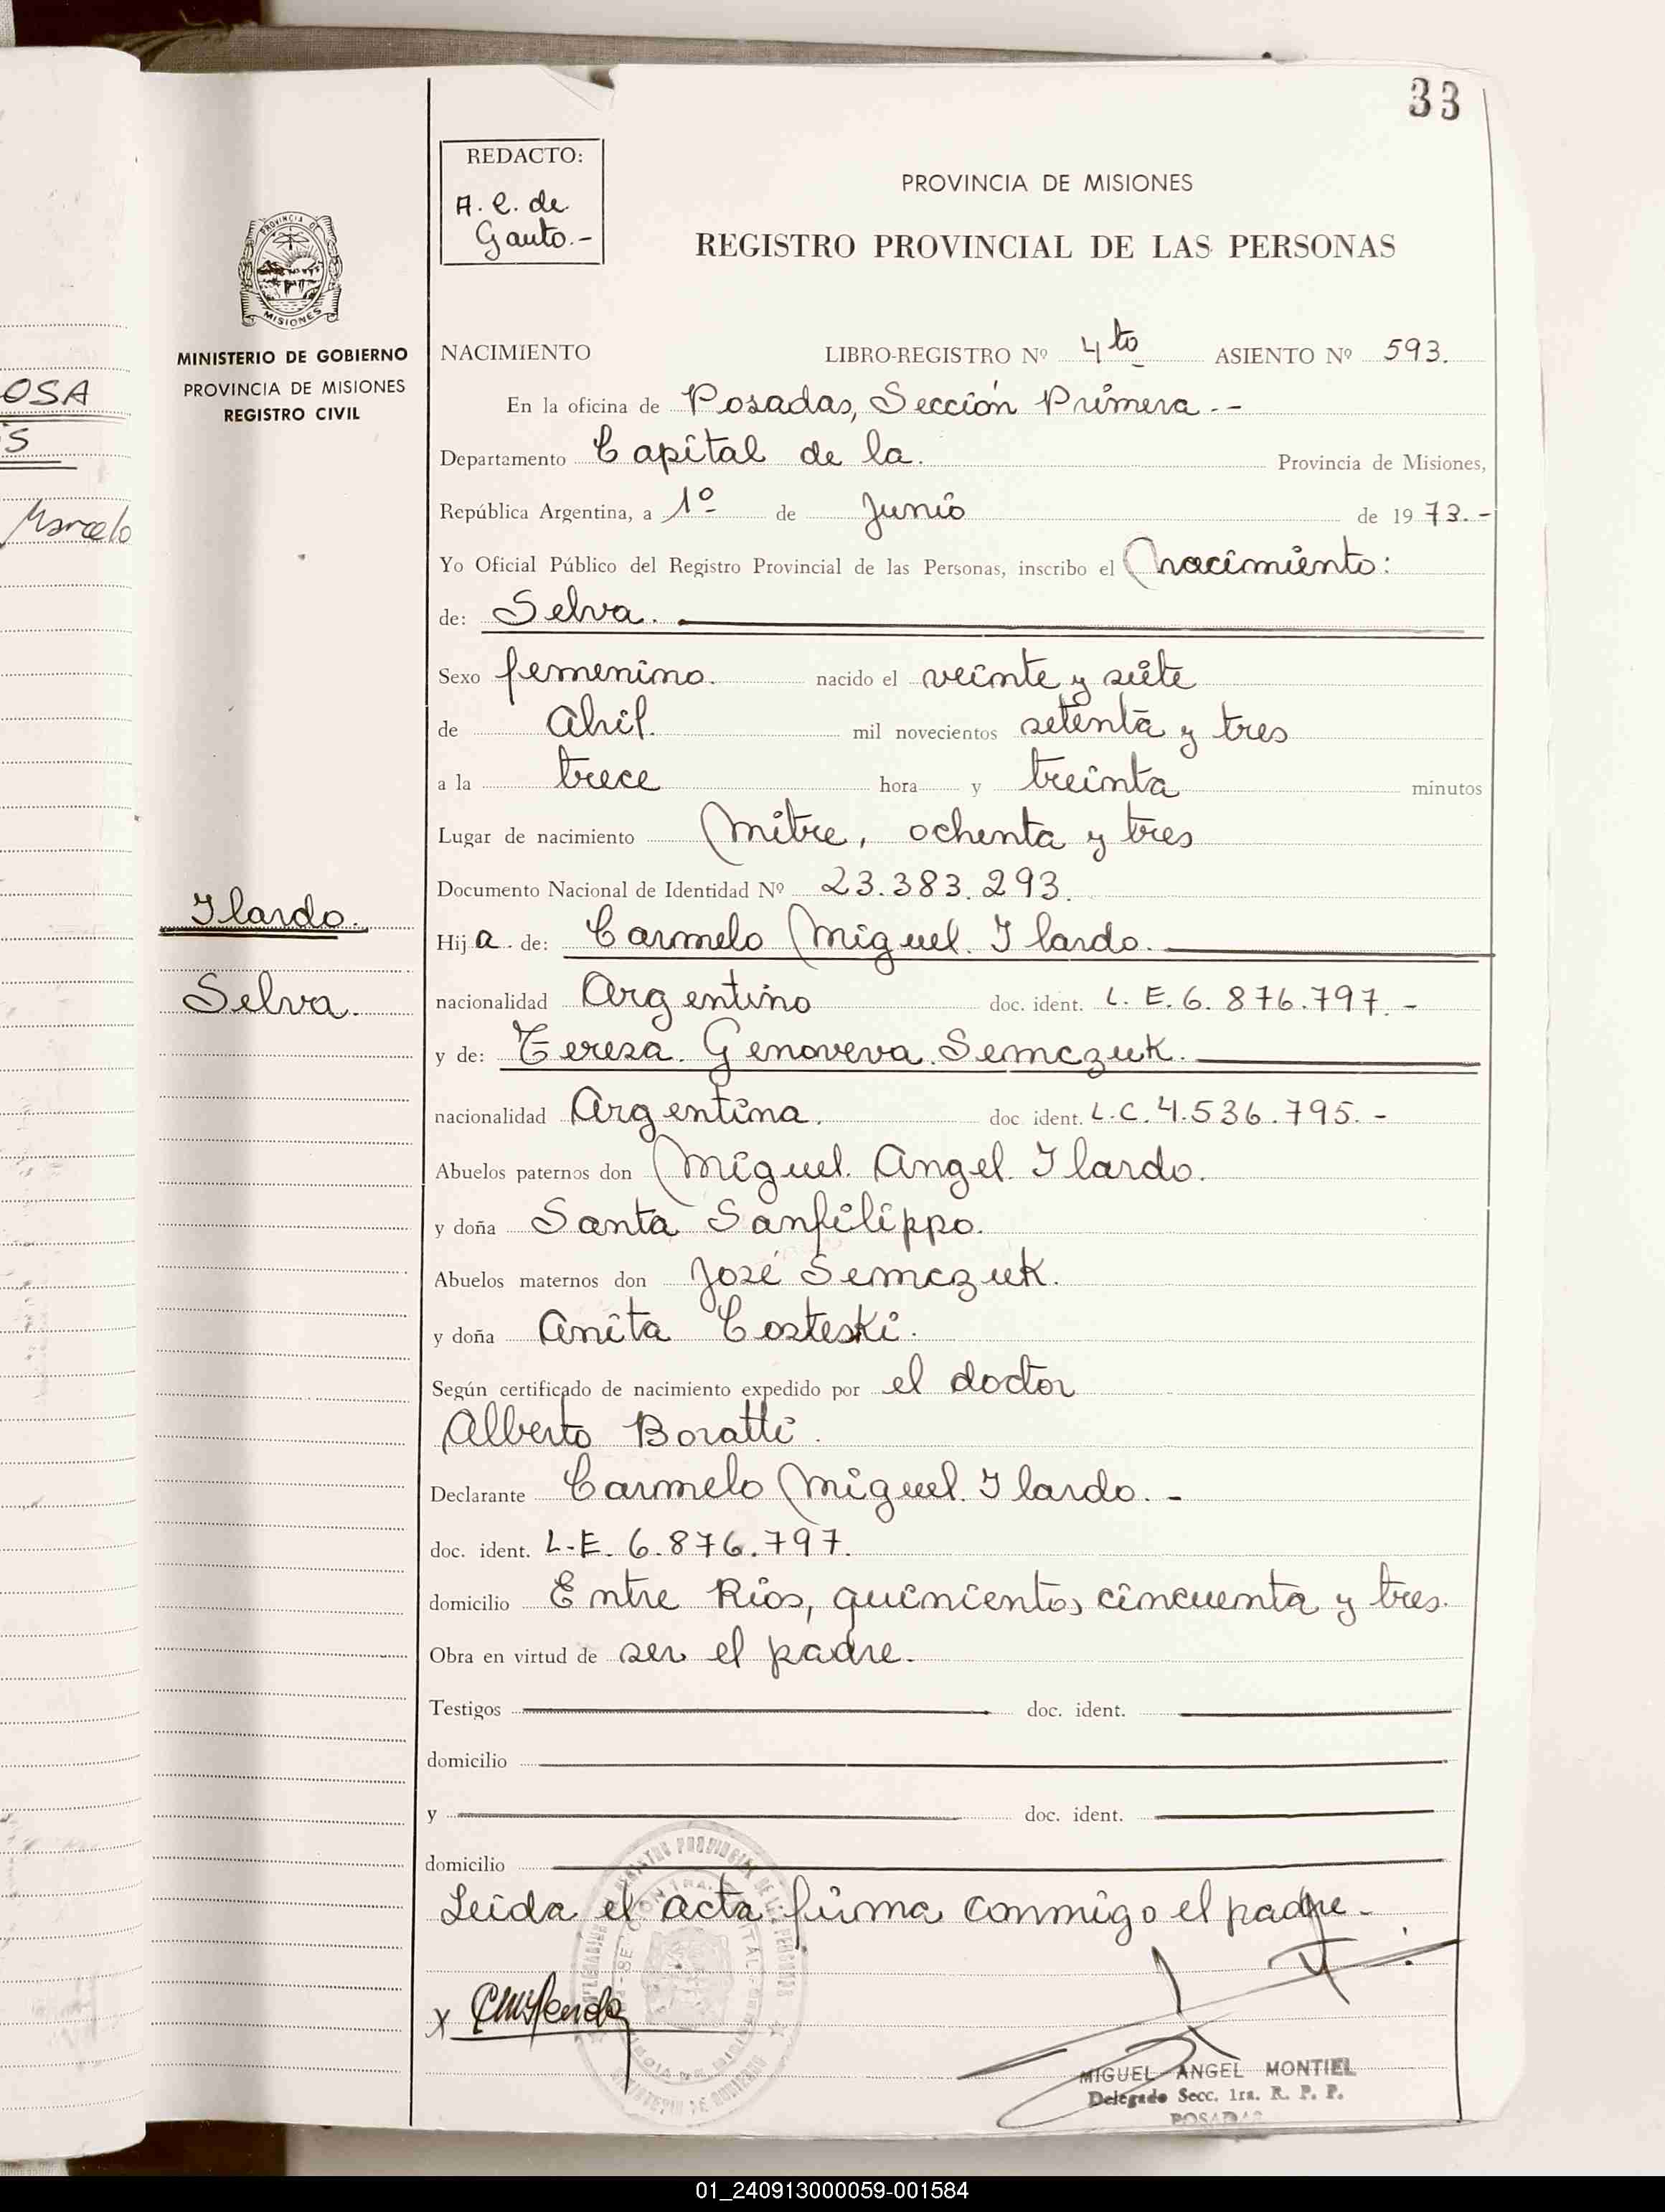 33
REDACTO:
A. C. de
Gauto.-
PROVINCIA DE MISIONES
REGISTRO PROVINCIAL DE LAS PERSONAS
PROVINCIA DE
MISIONES
MINISTERIO DE GOBIERNO
PROVINCIA DE MISIONES
REGISTRO CIVIL
OSA
S
Marcelo
NACIMIENTO LIBRO-REGISTRO Nº 4to ASIENTO Nº 593.
En la oficina de Posadas, Sección Primera.-
Departamento Capital de la. Provincia de Misiones,
República Argentina, a 1º de Junio de 1973.-
Yo Oficial Público del Registro Provincial de las Personas, inscribo el Nacimiento:
de: Selva.
Sexo femenino. nacido el veinte y siete
de Abril. mil novecientos setenta y tres
a la trece hora y treinta minutos
Lugar de nacimiento Mitre, ochenta y tres
Documento Nacional de Identidad Nº 23.383.293.
Ilardo.
Selva.
Hija de: Carmelo Miguel Ilardo.
nacionalidad Argentino doc. ident. L. E. 6.876.797.-
y de: Teresa Genoveva Semczuk.
nacionalidad Argentina. doc ident. L.C. 4.536.795.-
Abuelos paternos don Miguel Angel Ilardo.
y doña Santa Sanfilippo.
Abuelos maternos don José Semczuk.
y doña Anita Costeski.
Según certificado de nacimiento expedido por el doctor
Alberto Boratti.
Declarante Carmelo Miguel Ilardo.-
doc. ident. L.E. 6.876.797.
domicilio Entre Rios, quinientos cincuenta y tres.
Obra en virtud de ser el padre.
Testigos doc. ident.
domicilio
y doc. ident.
domicilio
Leida el acta firma conmigo el padre.-
x
MIGUEL ANGEL MONTIEL
Delegado Secc. 1ra. R. P. P.
POSADAS
01_240913000059-001584